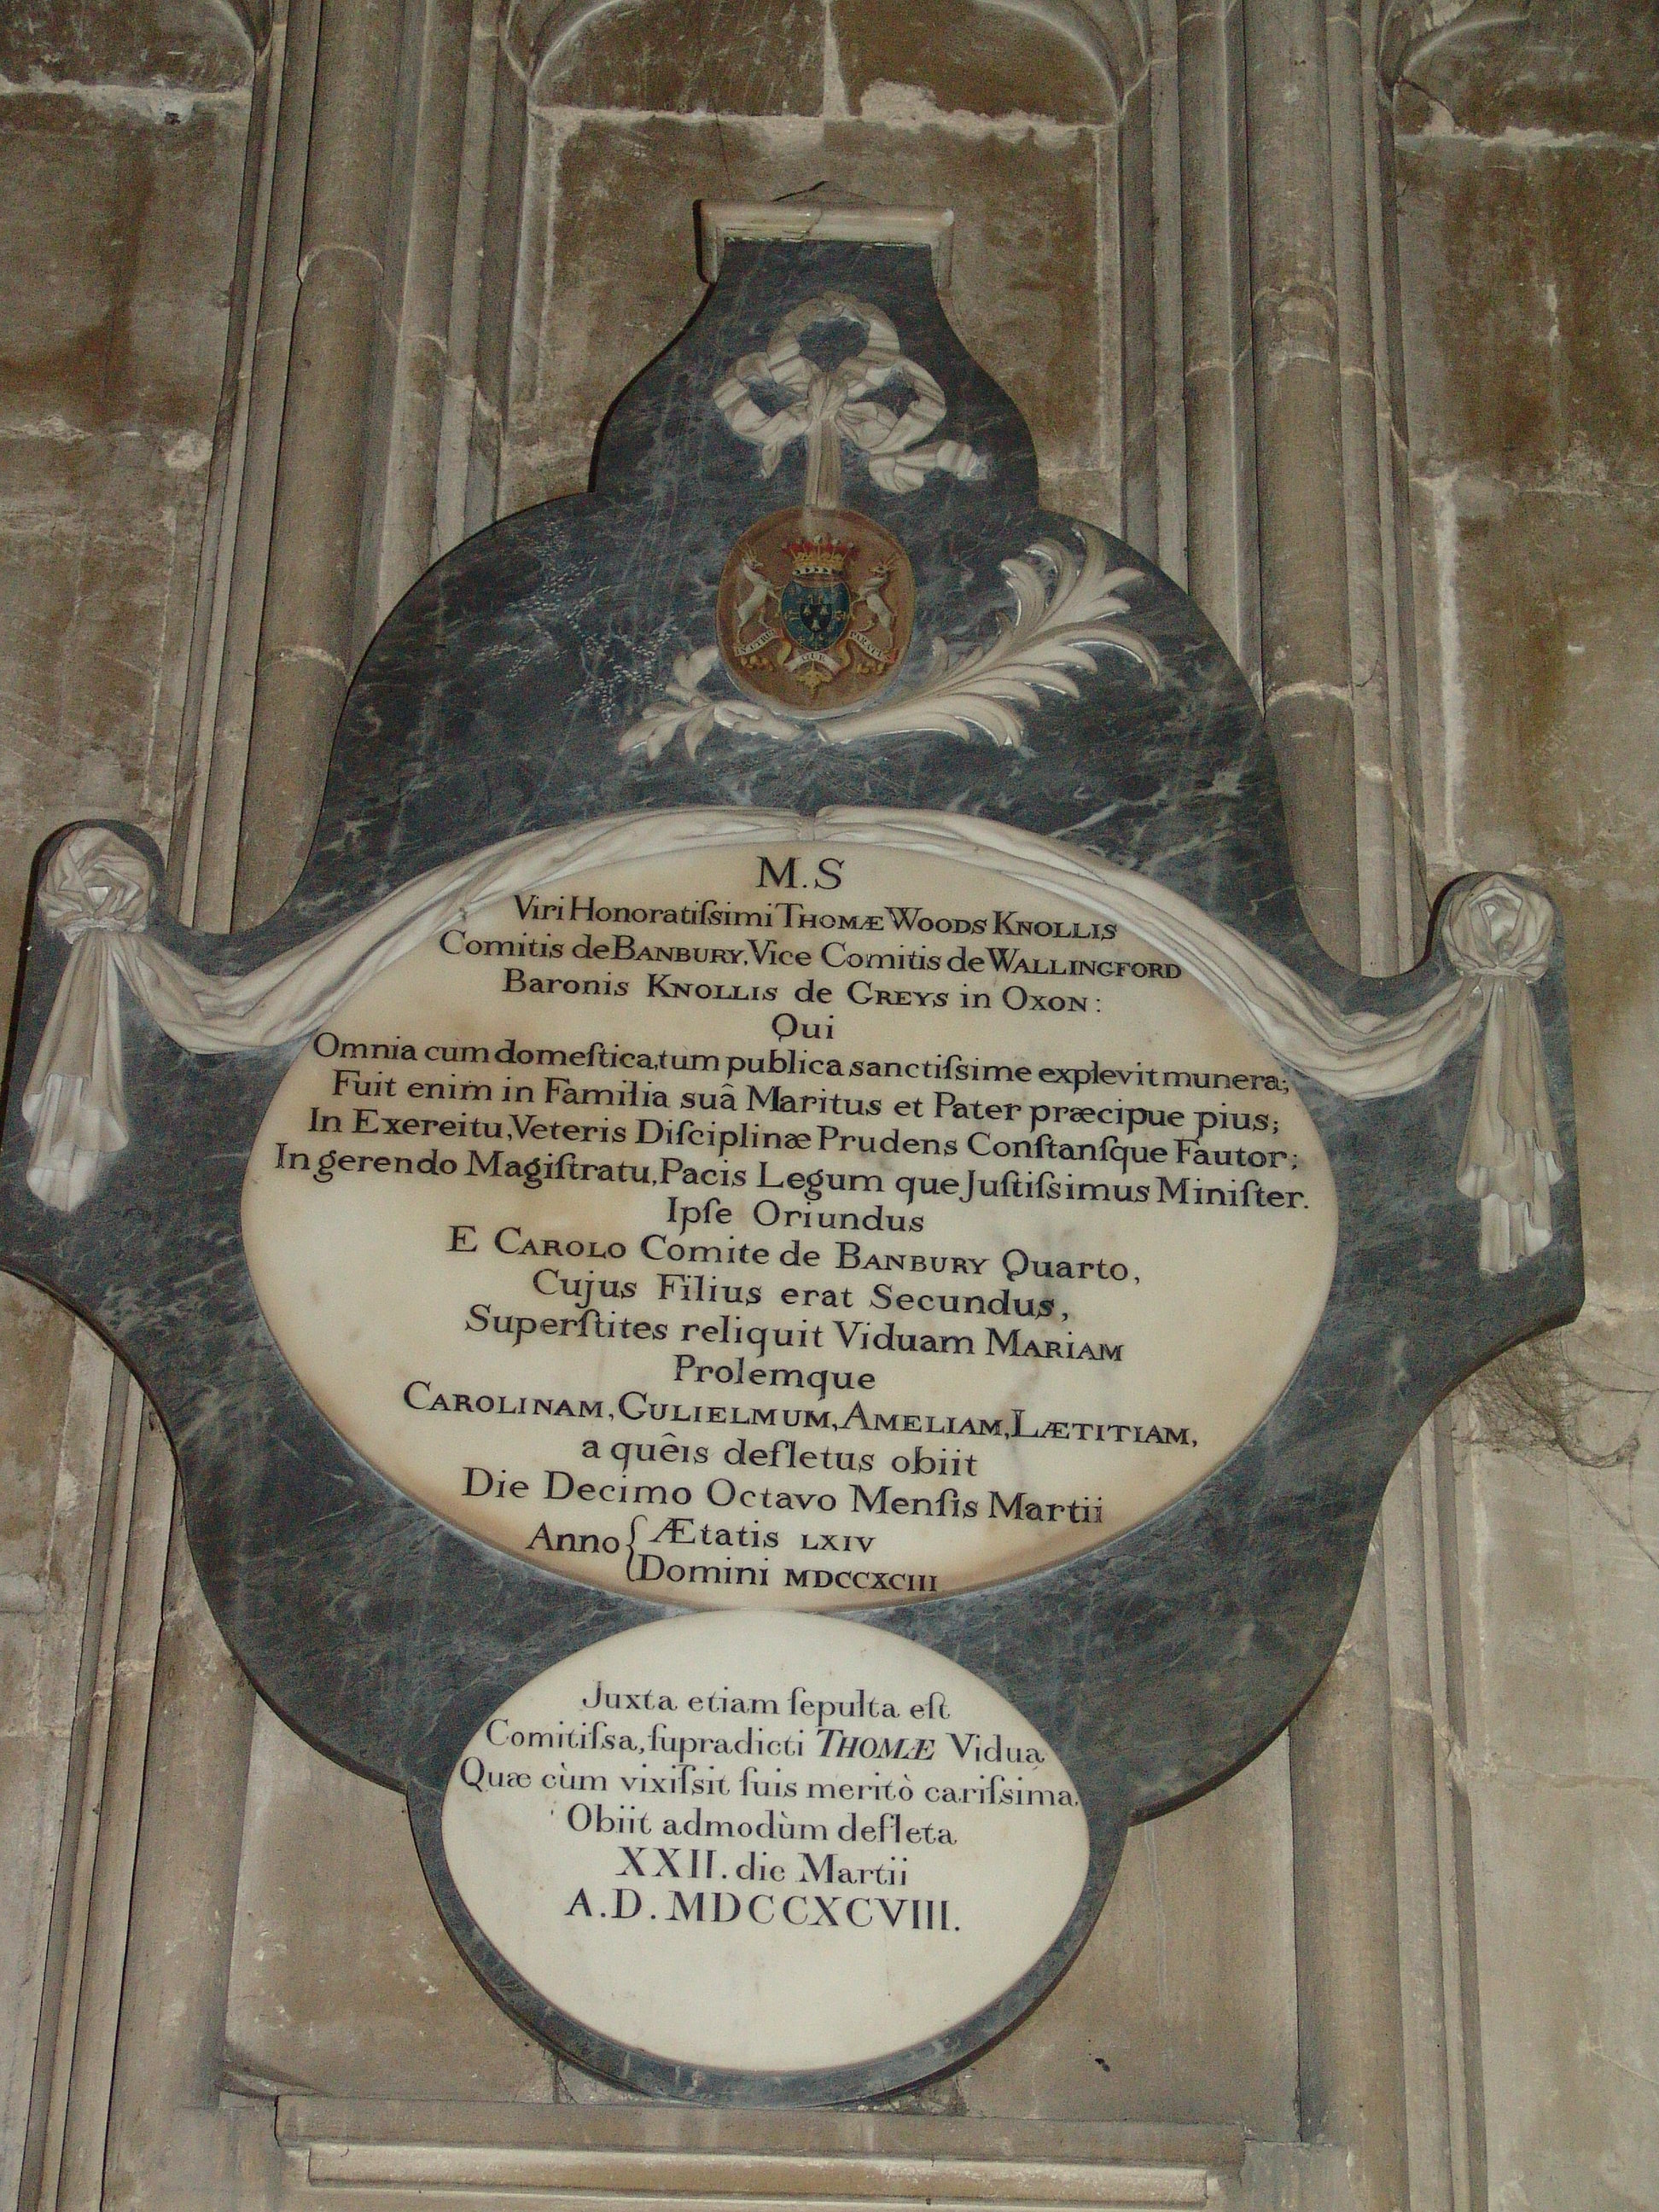 IN UTRUM QUE PARATUS
M.S
Viri Honoratiſsimi THOMÆ WOODS KNOLLIS
Comitis de BANBURY, Vice Comitis de WALLINGFORD
Baronis KNOLLIS de GREYS in OXON:
Qui
Omnia cum domeſtica, tum publica sanctiſsime explevit munera;
Fuit enim in Familia suâ Maritus et Pater præcipue pius;
In Exereitu, Veteris Diſciplinæ Prudens Conſtanſque Fautor;
In gerendo Magiſtratu, Pacis Legum que Juſtiſsimus Miniſter.
Ipſe Oriundus
E CAROLO Comite de BANBURY Quarto,
Cujus Filius erat Secundus,
Superſtites reliquit Viduam MARIAM
Prolemque
CAROLINAM, GULIELMUM, AMELIAM, LÆTITIAM,
a quêis defletus obiit
Die Decimo Octavo Menſis Martii
Anno { Ætatis LXIV
Domini MDCCXCIII
Juxta etiam ſepulta eſt
Comitiſsa, ſupradicti THOMÆ Vidua
Quæ cùm vixiſsit ſuis meritò cariſsima
Obiit admodùm defleta
XXII. die Martii
A.D. MDCCXCVIII.